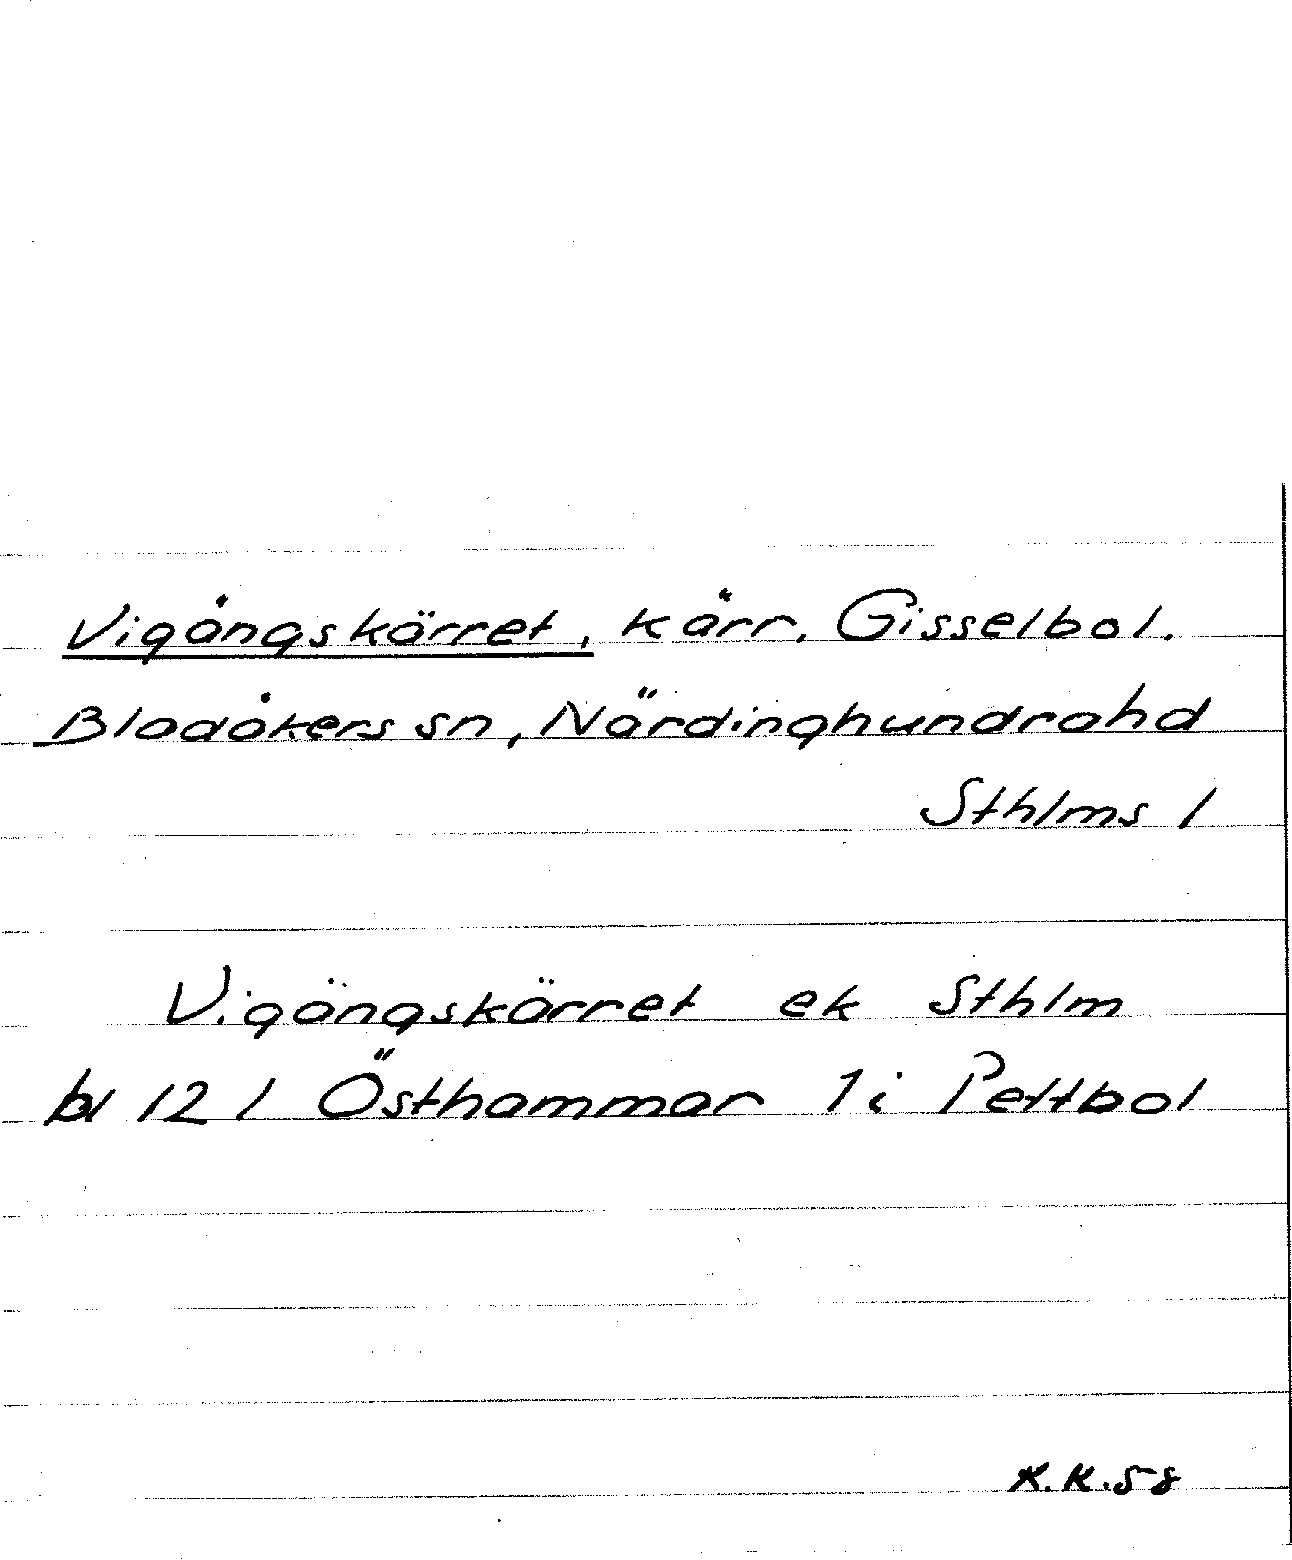 Vigångskärret, kärr. Gisselbol.
Bladåkers sn, Närdinghundrahd
Sthlms l
Vigängskärret ek Sthlm
bl 12 l Östhammar 1 i Pettbol
K.K.58